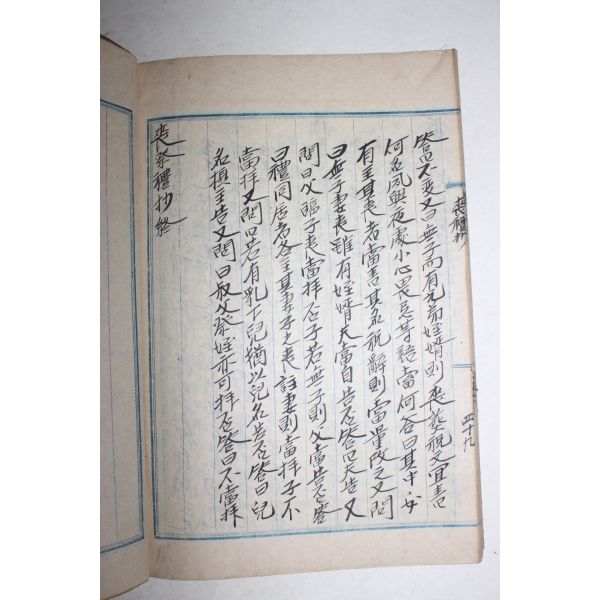 答曰不哭又曰無子而有兄弟姪婿則喪葬祝文宜書
何名夙興夜處小心畏忌等語當何答曰其中
有主其喪者當書其名祝辭則當量改之又問
曰無子妻喪雖有姪婿夫當自告否答曰夫告又
問曰父臨子喪當拜否子若無子則父當告否答
曰禮同居者各主其妻子之喪註妻則當拜子不
當拜又問曰若有乳下兒猶以兒名告否答曰兒
名攝主告又問曰叔父祭姪亦可拜否答曰不當拜
喪祭禮抄終
喪禮抄
四十九